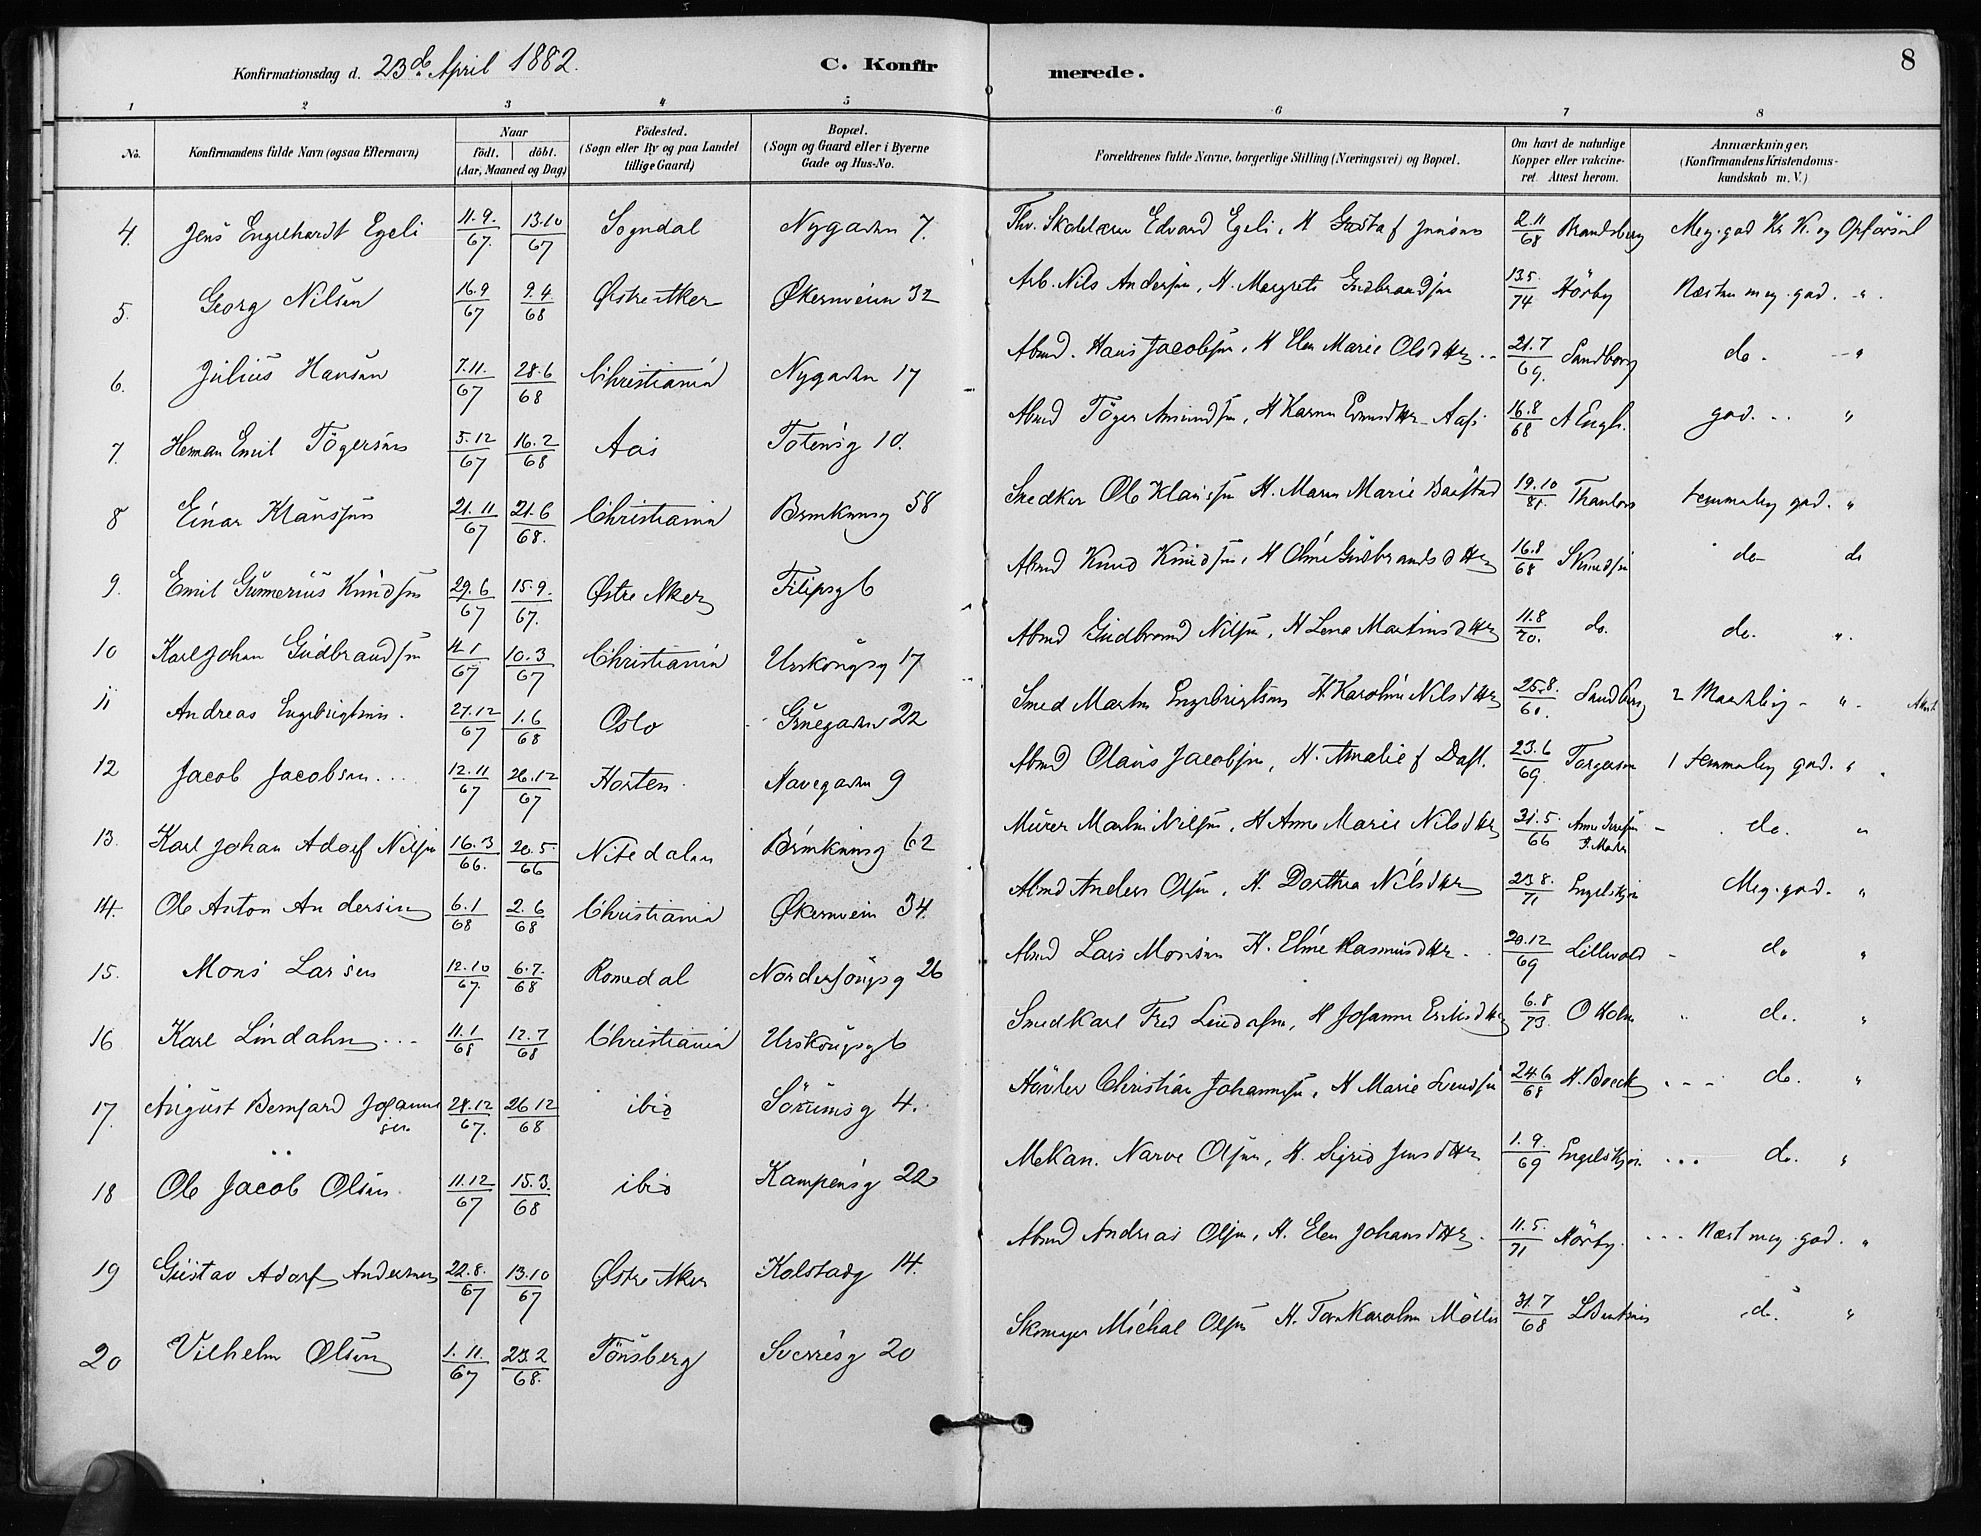 8
Konfirmationsdag d. 23de April 1882.
C. Konfirmerede.
1 2 3 4 5 6 7 8
No. Konfirmandens fulde Navn (ogsaa Efternavn) Naar født. døbt. (Aar, Maaned og Dag) Fødested. (Sogn eller By og paa Landet tillige Gaard) Bopæl. (Sogn og Gaard eller i Byerne Gade og Hus-No. Forældrenes fulde Navne, borgerlige Stilling (Næringsvei) og Bopæl. Om havt de naturlige Kopper eller vakcineret. Attest herom. Anmærkninger. (Konfirmandens Kristendomskundskab m. V.)
4. Jens Engelhardt Egeli 11.9./67. 13.10/67 Sogndal Nygaden 7. Edvard Egeli, H 2.11/68 Meg. god Kr. K. og Opførsel
5. Georg Nilsen 16.9/67 9.4./68 Østre Aker Økernveien 32 Arb. Nils Andersen, H. Margrete Gudbrandsen 13.5./74 Hörby Næsten meg. god. - ".
6. Julius Hansen 7.11./67 28.6/68 Christiania Nygaden 17 Abmd. Hans Jacobsen, H Elen Marie Olsdtter 21.7/69. Sandborg do. - "
7. Herman Emil Tögersen 5.12/67 16.2/68 Aas Totensg 10. Abmd Töger Amundsen, H Karen Aas. 16.8/68 A Engh. god. - "
8 Einar Klaussen 21.11/67 21.6/68. Christiania Brinkensg 58 Snedker Ole Klaussen H. Maren Marie 19.10/81. temmelig god. "
9. Emil Gunnerius Knudsen 29.6/67 15.9./67. Østre Aker Filipsg 6 Abmd Knud Knudsen, H Oline Gudbrandsdtter 16.8/68 S Knudsen do do
10 Karl Johan Gudbrandsen 4.1/67 10.3/67 Christiania Urskougsg 17 Abmd Gudbrand Nilsen, H Lena Martinsdtter 11.8/70. do. do. ".
11 Andreas Engebrigtsen. 27.12/67 1.6/68 Oslo Grüegaden 22 Smed Martin Engebrigtsen H. Karoline Nilsdtter 25.8./60. Sandborg 2 Maadelig - ".
12 Jacob Jacobsen... 12.11/67 26.12/67 Horten. Navegaden 9 Abmd Olaus Jacobsen, H. Amalie f Dahl. 23.6/69. Torgersen 1 temmelig god. "
13. Karl Johan Adolf Nilsen 16.3/66. 20.5/66 Nitedalen Brinkensg 62 Murer Martin Nilsen, H Anne Marie Nilsdtter 31.5./66 - do. "
14. Ole Anton Andersen 6.1/68 2.6/68 Christiania Økernveien 34. Abmd Anders Olsen, H. Dorthea Nilsdtter 23.8./71 Meg. god. "
15. Mons Larsen 12.10/67. 6.7./68 Romedal Nordersougsg 26 Abmd Lars Monsen H. Eline Rasmusdtter. 20.12/69 Lillevold - do "
16 Karl Lindahn... 11.1/68 12.7/68 Christiania Urskougsg 6 Smed Karl Fred Lindahn, H Johanne Eriksdtter 6.8/73. O Holm " do. "
17. August Bernhard Johannesen 28.12/67. 26.12/68 ibid Sörumsg 4. Høvler Christian Johannesen, H Marie Svendsen 24.6/68 H. Boeck --- do. "
18 Ole Jacob Olsen. 11.12/67 15.3./68 ibid Kampensg 22 Mekan. Narve Olsen, H. Sigrid Jensdtter 1.9./69 ... do. "
19 Gustav Adolf Andersen 22.8./67 13.10/67 Østre Aker Kolstadg 14. Abmd Andreas Olsen, H. Elen Johansdtter. 11.5./71 Hörby. --- Næst meg. god. "
20 Vilhelm Olsen 1.11./67 23.2/68. Tönsberg Sverresg 20 Skomager Michal Olsen H. Karoline Möller 31.7/68 do "